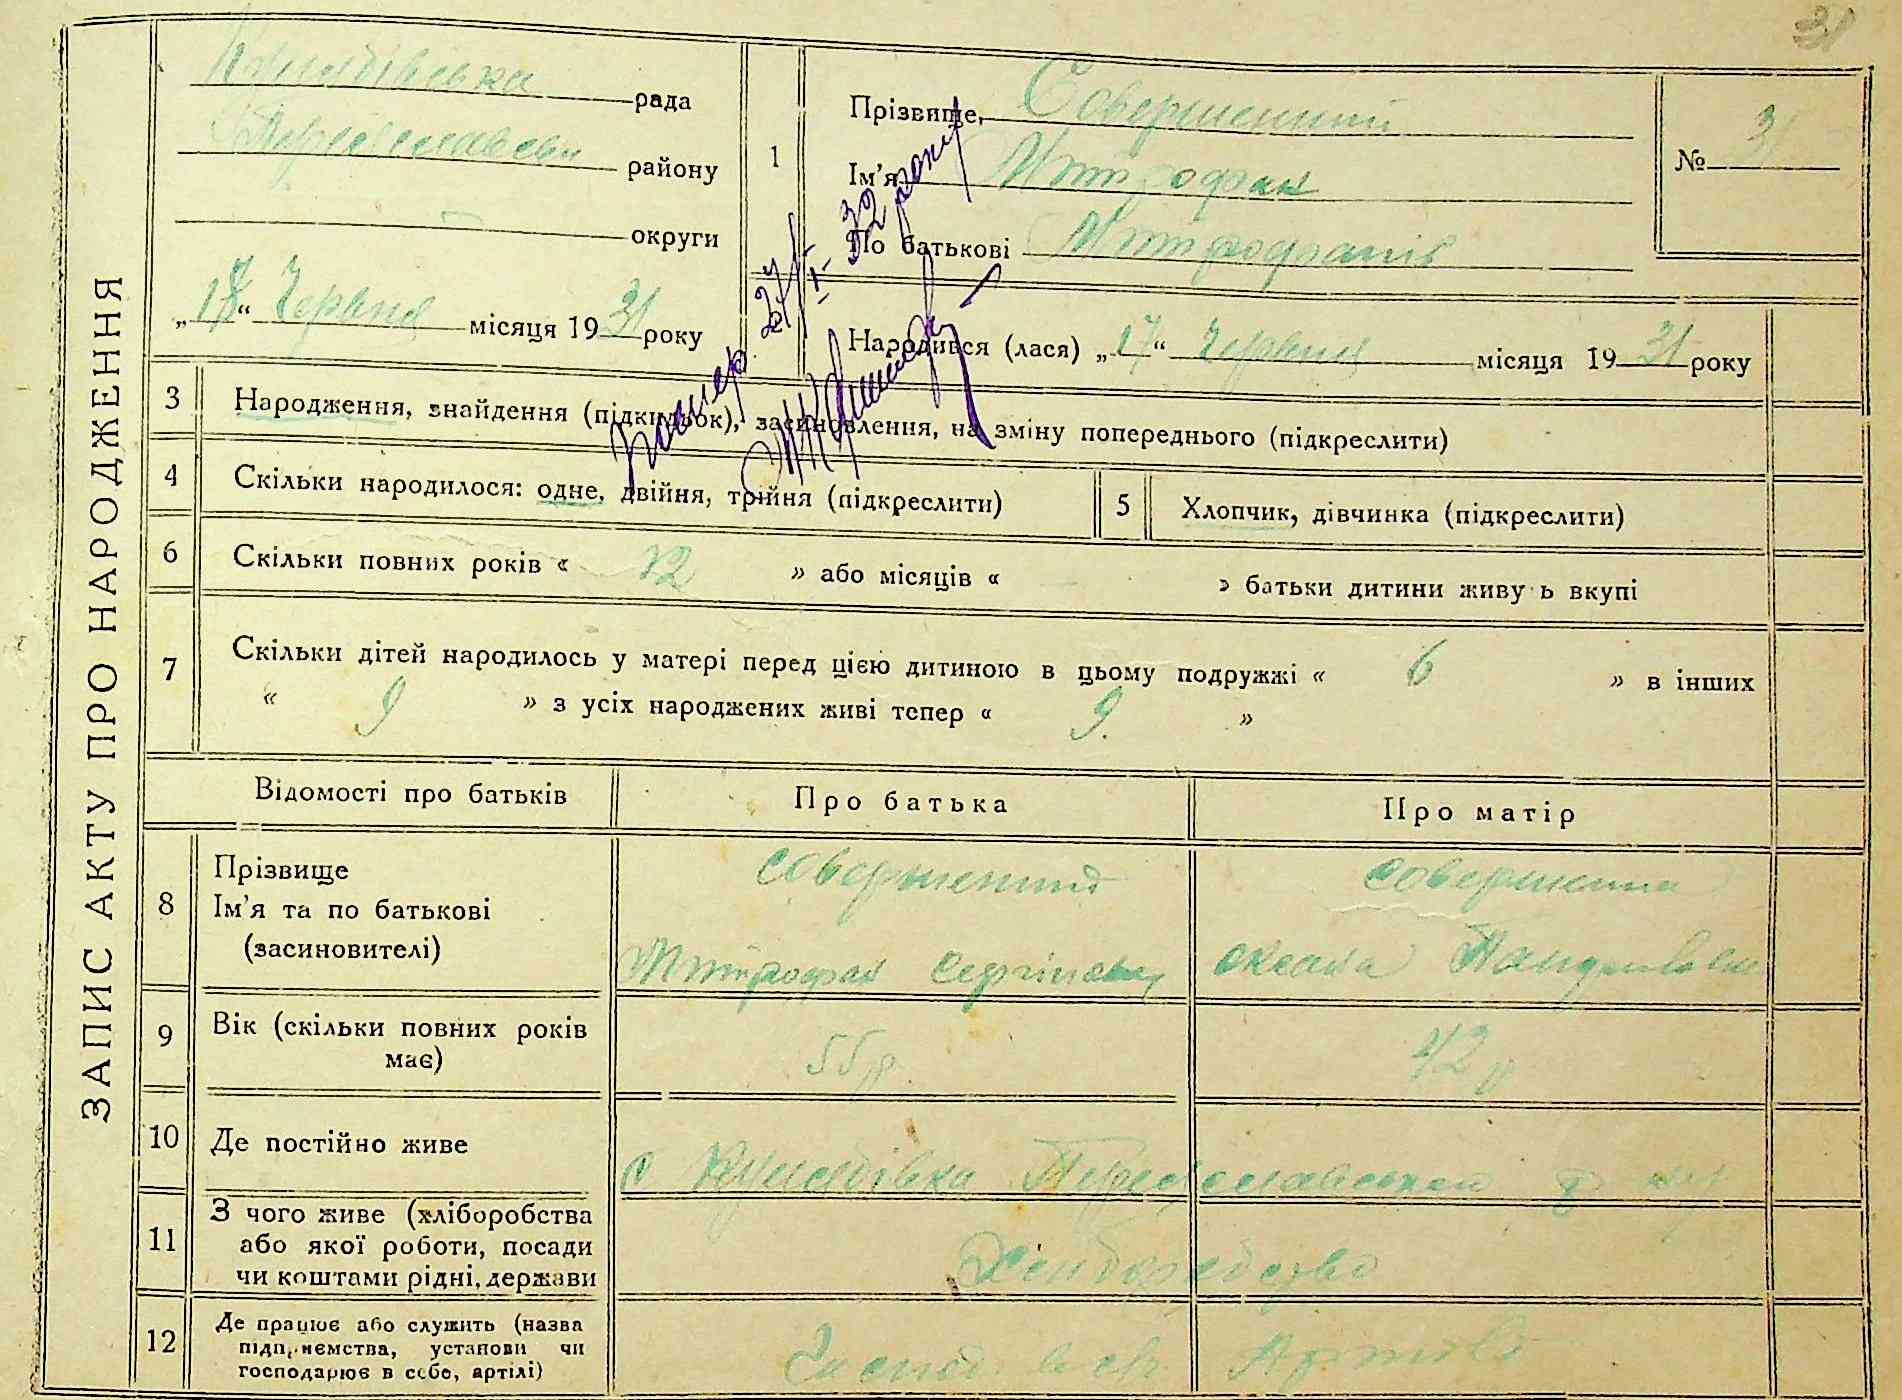 31
ЗАПИС АКТУ ПРО НАРОДЖЕННЯ
рада
району
округи
„17“ Червня місяця 1931 року
1
Прізвище, Совершенний
Ім'я Митрофан
По батькові Митрофанів
№ 31
Народився (лася) „17“ Червня місяця 1931 року
Помер 24/I-32 року
3 Народження, знайдення (підкидьок), засиновлення, на зміну попереднього (підкреслити)
4 Скільки народилося: одне, двійня, трійня (підкреслити)
5 Хлопчик, дівчинка (підкреслити)
6 Скільки повних років « 12 » або місяців « » батьки дитини живу ь вкупі
7 Скільки дітей народилось у матері перед цією дитиною в цьому подружжі « 6 » в інших
« 9 » з усіх народжених живі тепер « 9. »
Відомості про батьків
Про батька
Про матір
8 Прізвище
Ім'я та по батькові
(засиновителі)
Совершенний
Митрофан Сергійович
Совершенна
Оксана
9 Вік (скільки повних років
має)
55 р.
42 р
10 Де постійно живе
с
11 З чого живе (хліборобства
або якої роботи, посади
чи коштами рідні, держави
Хліборобство
12 Де працює або служить (назва
підприємства, установи чи
господарює в себе, артілі)